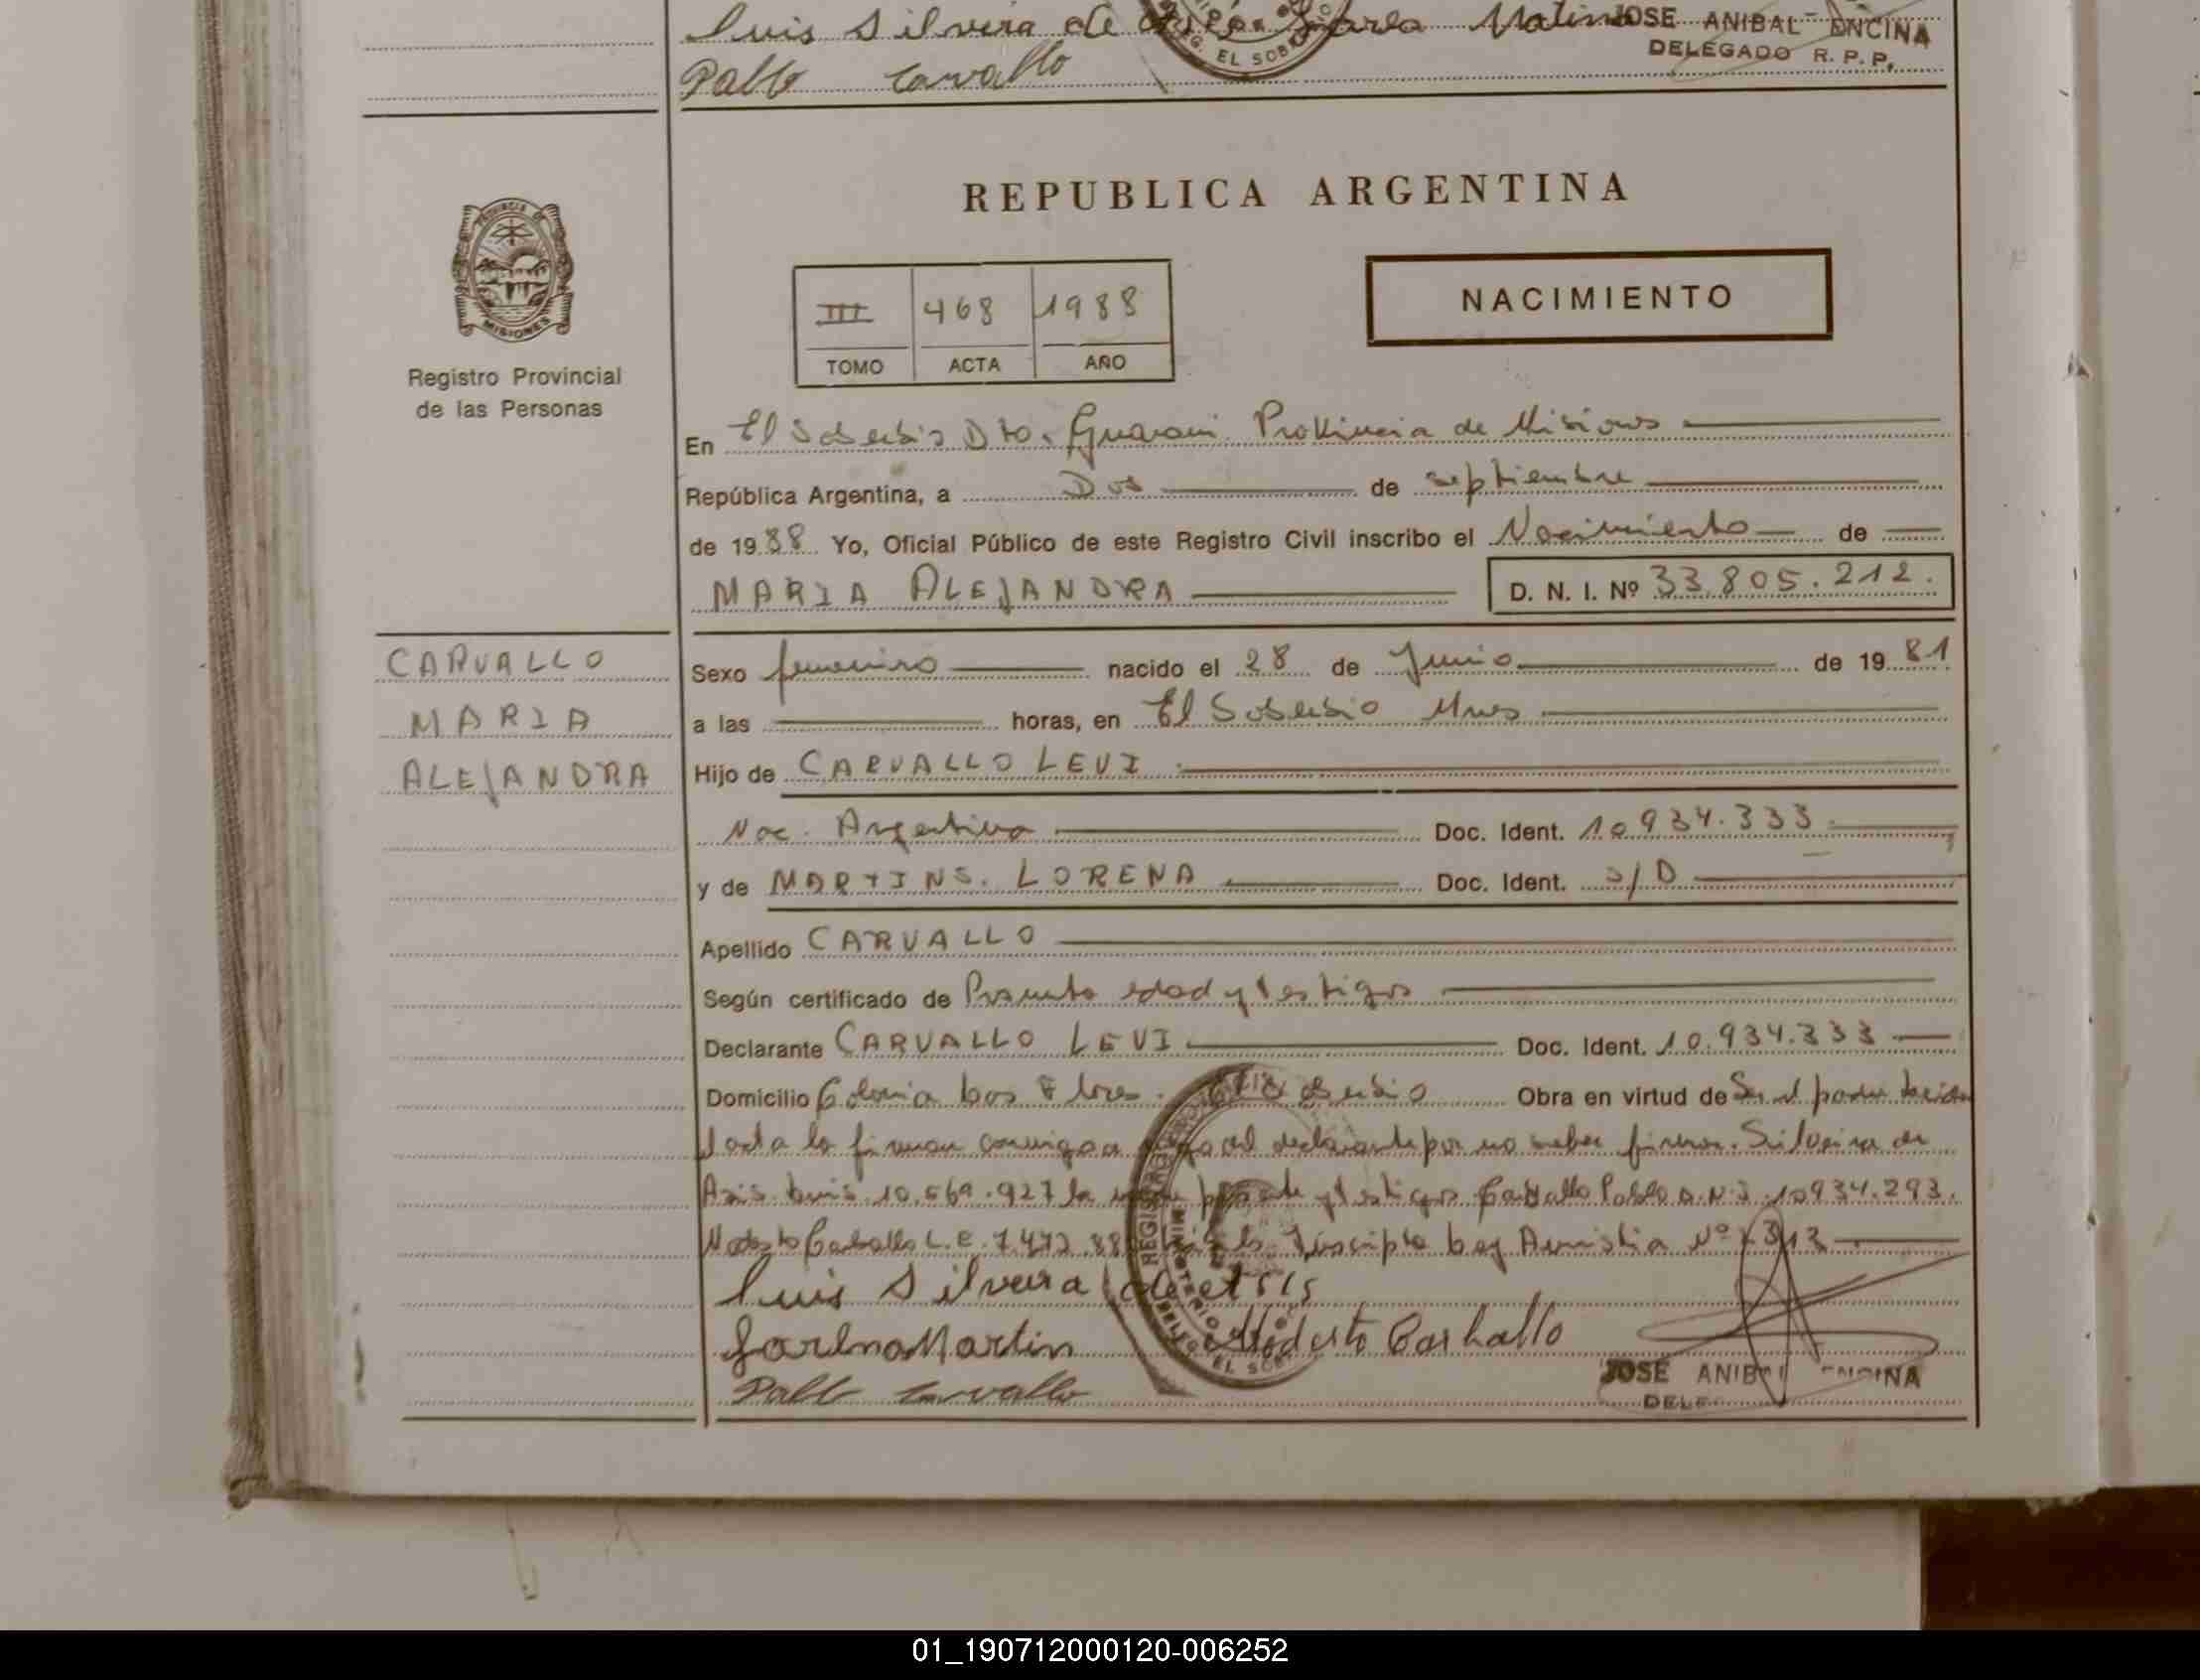 Luis Silvera de
JOSE ANIBAL ENCINA
DELEGADO R. P. P.
EL SOB
Pablo Carvallo
REPUBLICA ARGENTINA
PROVINCIA DE
MISIONES
III 468 1988
TOMO ACTA AÑO
NACIMIENTO
Registro Provincial
de las Personas
En El Soberbio Dto. Guarani Provincia de Misiones
República Argentina, a Dos de septiembre
de 1988 Yo, Oficial Público de este Registro Civil inscribo el Nacimiento de
MARIA ALEJANDRA D. N. I. Nº 33.805.212.
CARVALLO
MARIA
ALEJANDRA
Sexo femenino nacido el 28 de Junio de 1981
a las horas, en El Soberbio Mnes
Hijo de CARVALLO LEVI
Nac. Argentina Doc. Ident. 10.934.333
y de MARTINS. LORENA Doc. Ident. S/D
Apellido CARVALLO
Según certificado de Presunta edad y testigos
Declarante CARVALLO LEVI Doc. Ident. 10.934.333
Domicilio Colonia Los Flores. El Soberbio Obra en virtud de Ser el padre
la firman conmigo a declarante por no saber firmar. Silveira de
Asis Luis 10.569.927 la y testigos Carvallo Pablo D.N.I. 10934.293.
Modesto Carballo L.E. 7.472.88 Inscripto Ley Amnistia Nº
Luis Silveira de
Martin Modesto Carballo
Pablo Carvallo
JOSE ANIBAL ENCINA
EL SOB
01_190712000120-006252